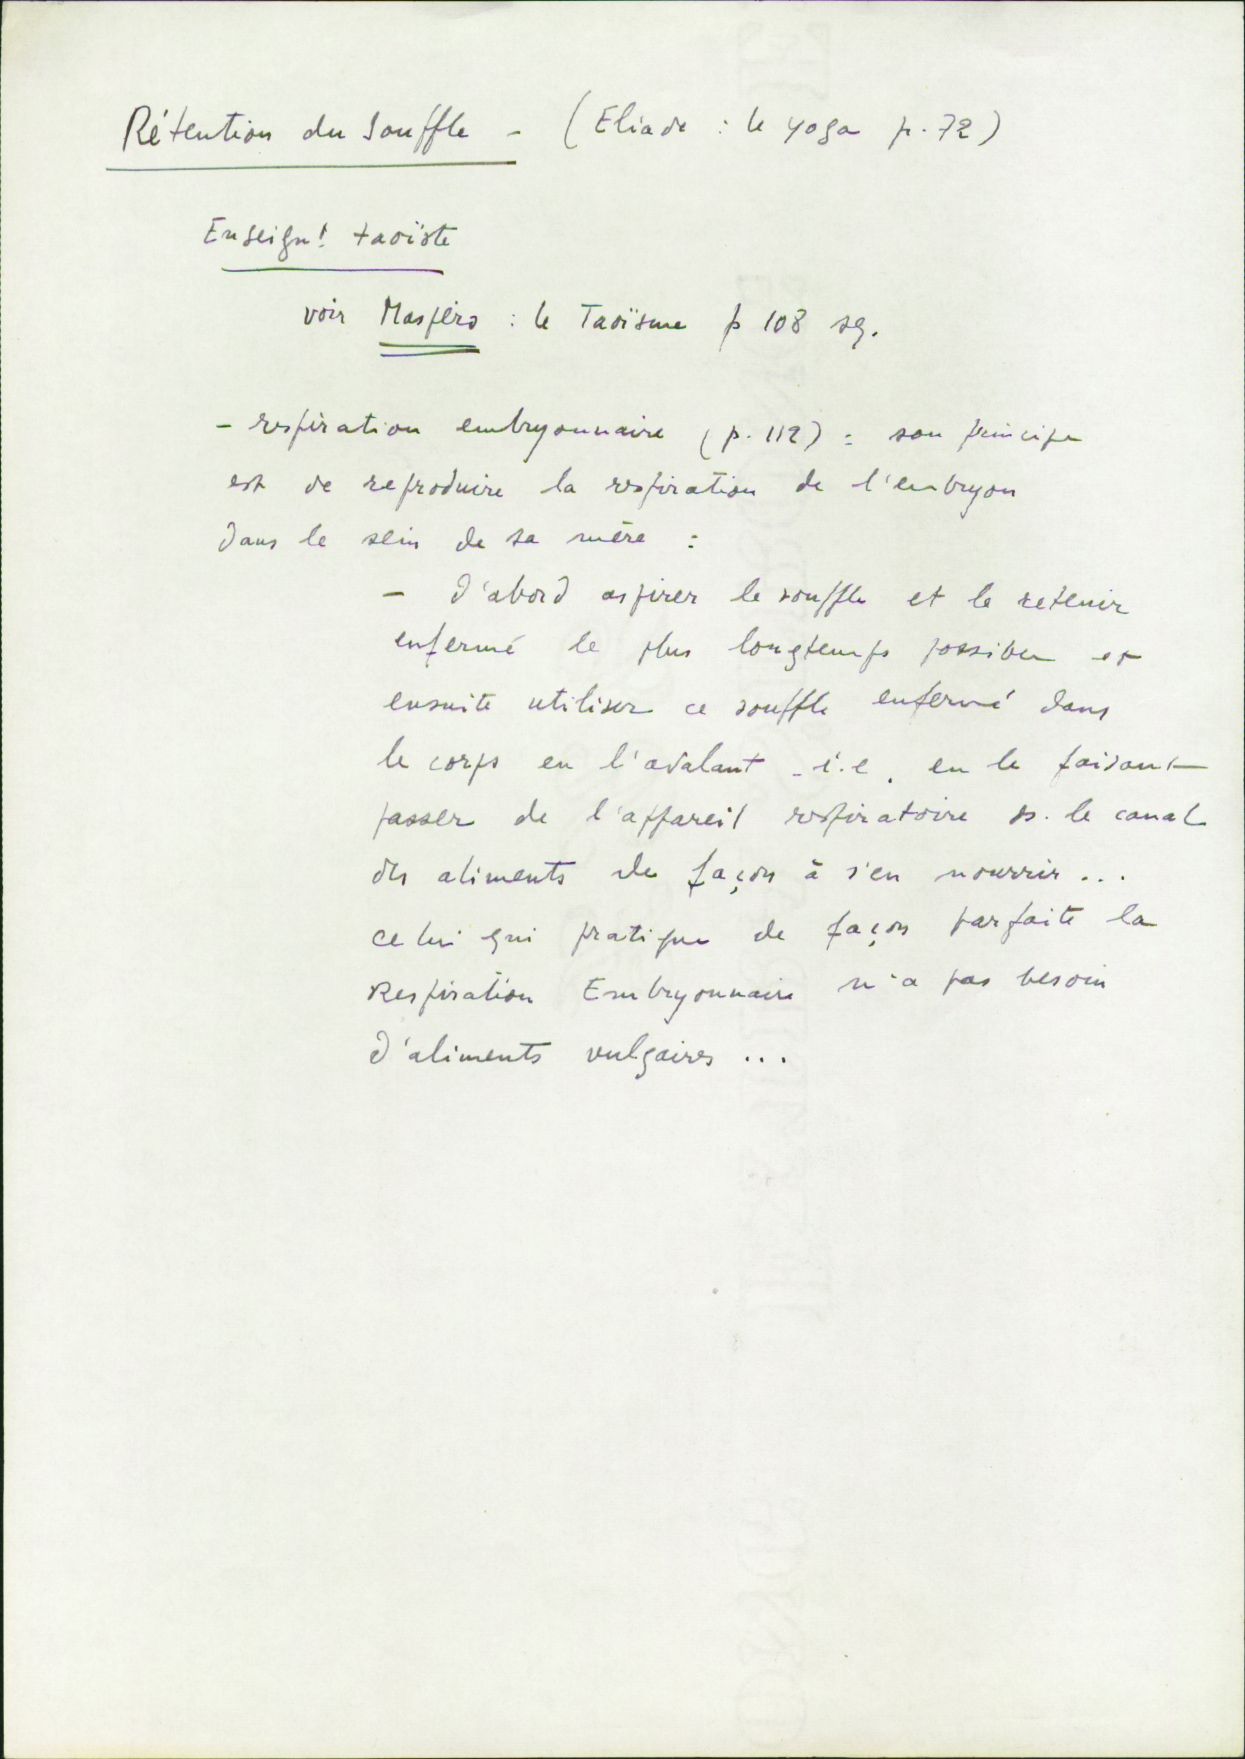 Rétention du Souffle - (Eliade : le yoga p. 72)
Enseignt taoïste
voir Maspéro : le Taoïsme p 108 sq.
- respiration embryonnaire (p. 112) : son principe
est de reproduire la respiration de l'embryon
dans le sein de sa mère :
- d'abord aspirer le souffle et le retenir
enfermé le plus longtemps possible et
ensuite utiliser ce souffle enfermé dans
le corps en l'avalant - i.e. en le faisant
passer de l'appareil respiratoire ds. le canal
des aliments de façon à s'en nourrir ...
celui qui pratique de façon parfaite la
Respiration Embryonnaire n'a pas besoin
d'aliments vulgaires ...